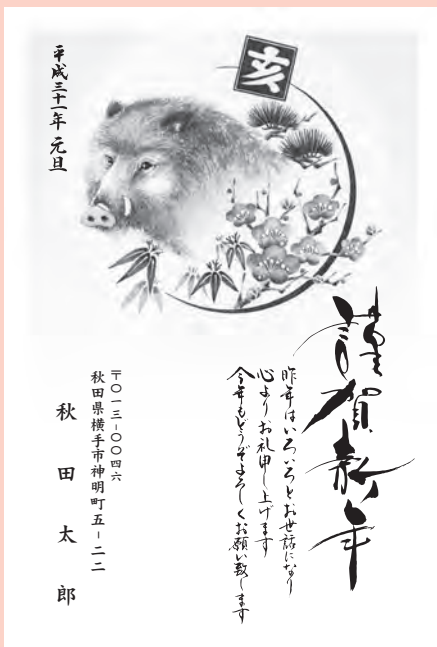 亥
謹賀新年
昨年はいろいろとお世話になり
心よりお礼申し上げます
今年もどうぞよろしくお願い致します
平成三十一年 元旦
〒〇一三-〇〇四六
秋田県横手市神明町五-二二
秋田太郎